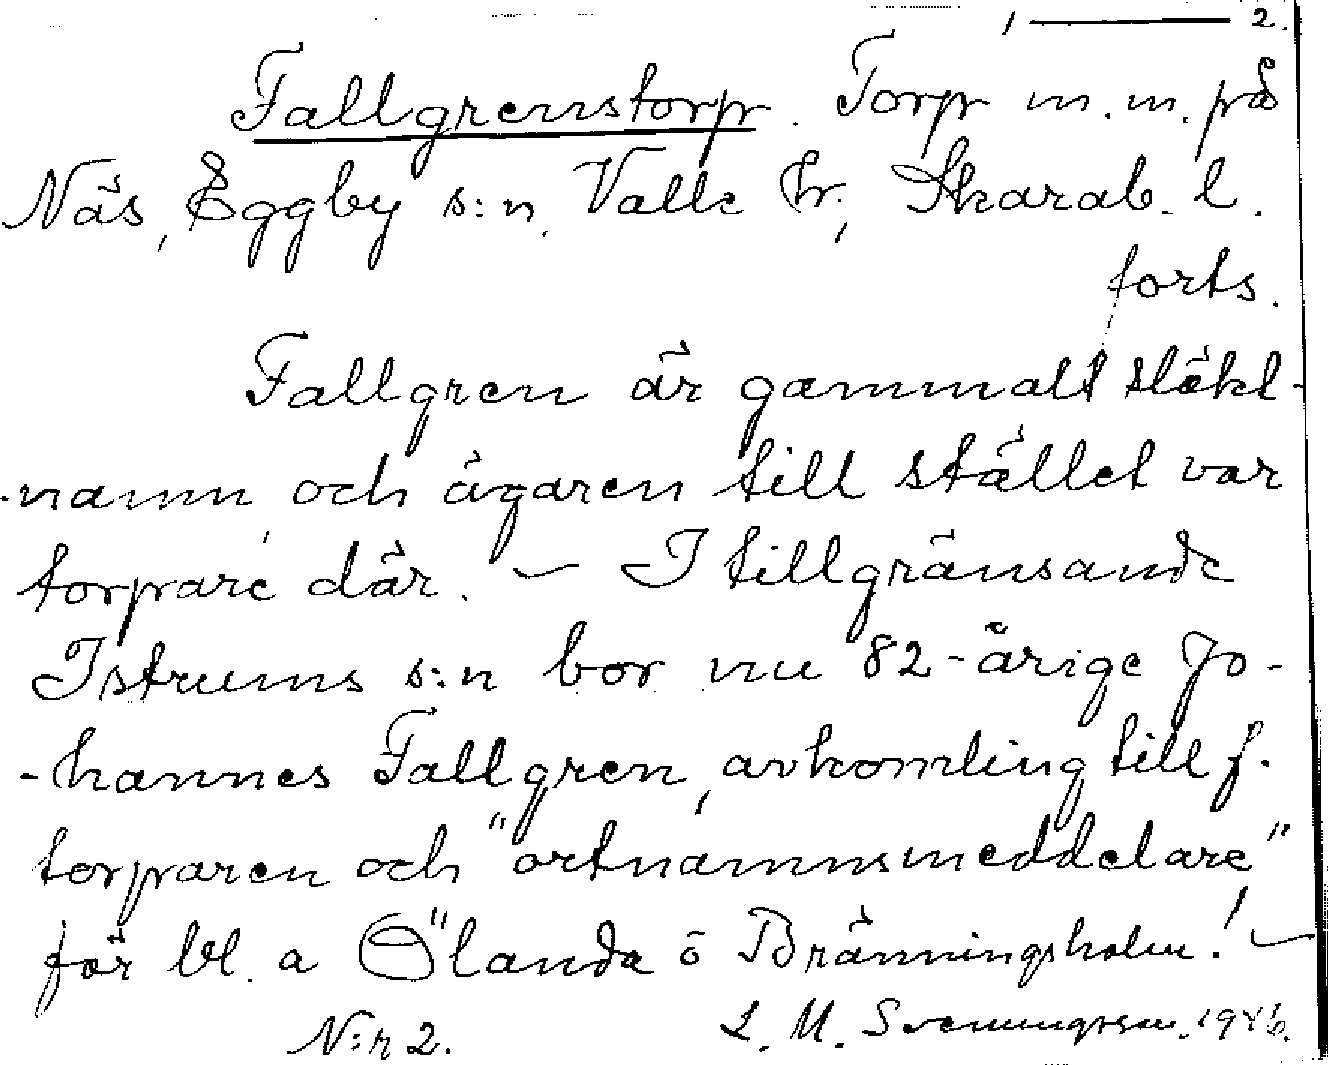 1 — 2.
Fallgrenstorp. Torp m. m. på
Näs, Eggby s:n, Valle hr., Skarab. l.
forts.
Fallgren är gammalt släkt-
-namn och ägaren till stället var
torpare där. — I tillgränsande
Istrums s:n bor nu 82-årige Jo-
-hannes Fallgren, avkomling till f.
torparen och "ortnamnsmeddelare"
för bl. a Ölanda o Bränningsholm! —
N:r 2. L. M. Svenungsson. 1946.